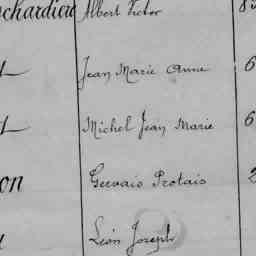 chardière Albert Victor 8
Jean Marie Anne 6
Michel Jean Marie 6
on Gervais Protais 2
Léon Joseph